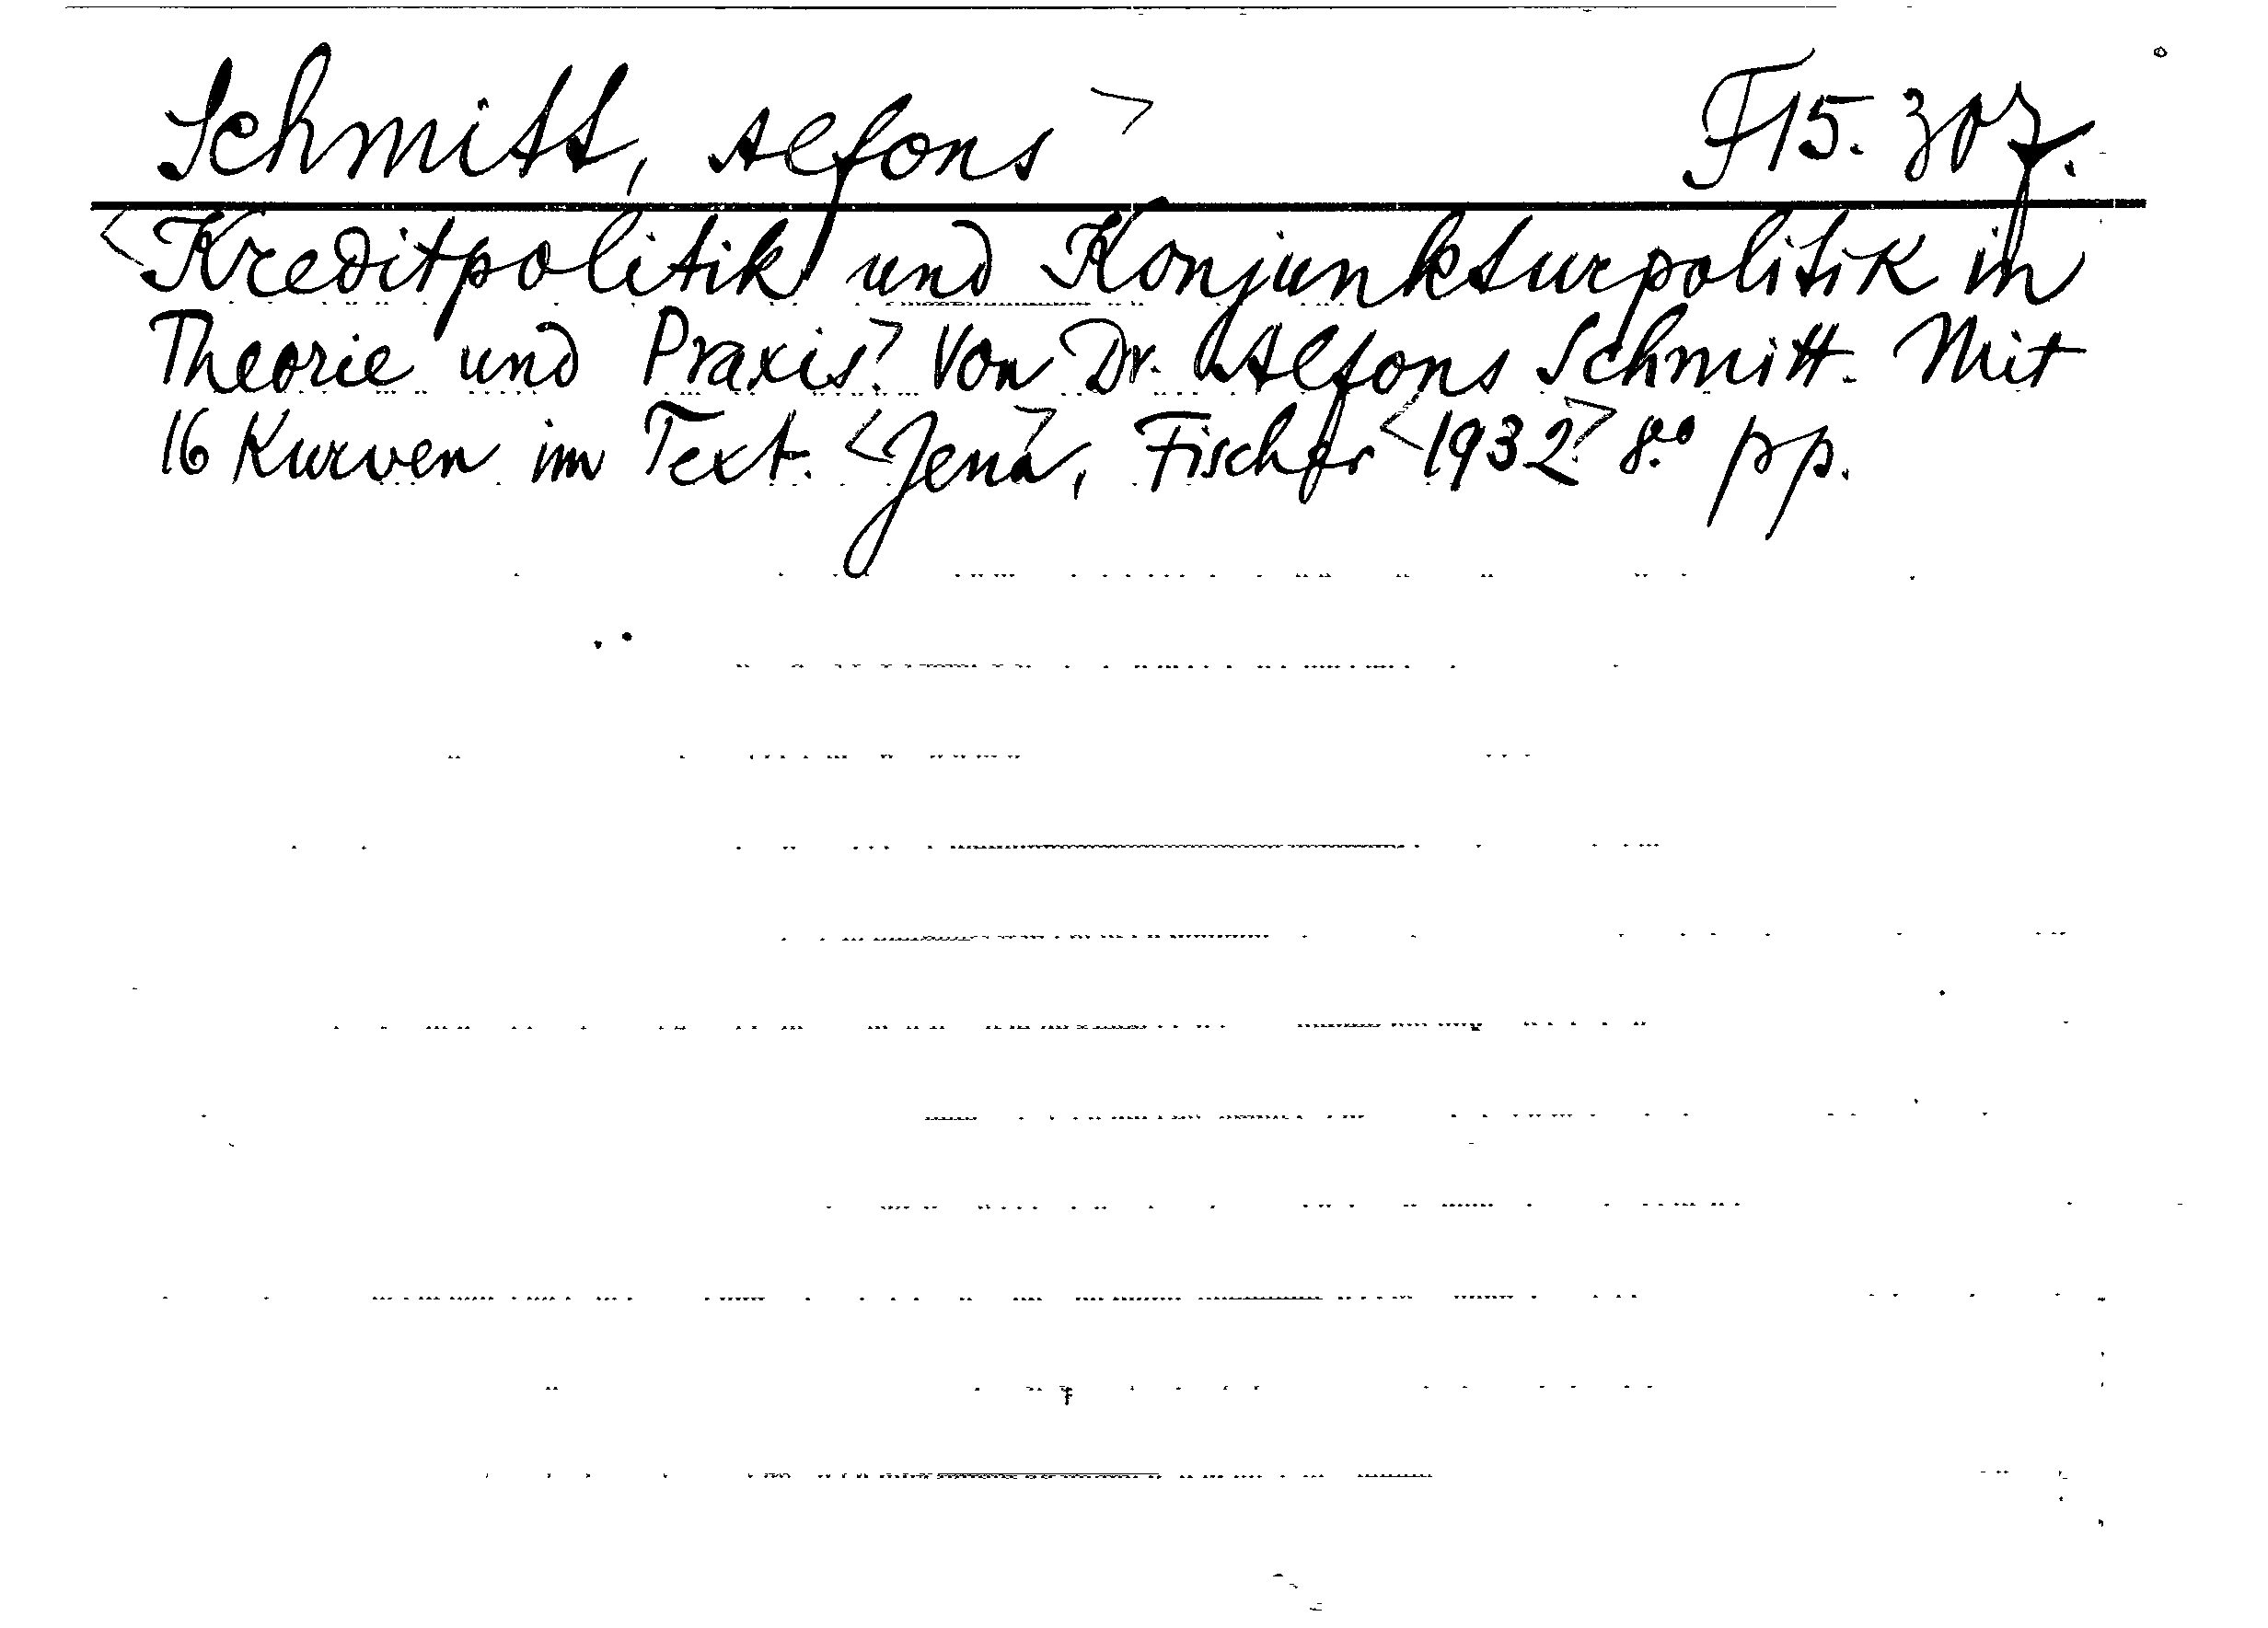 Schmitt, Alfons> F15.307.
<Kreditpolitik und Konjunkturpolitik in
Theorie und Praxis.> Von Dr. Alfons Schmitt. Mit
16 Kurven im Text. <Jena>, Fischer <1932.> 8.° pp.